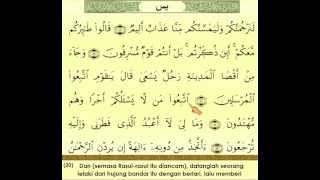 يس
لَنَرْجُمَنَّكُمْ وَلَيَمَسَّنَّكُم مِّنَّا عَذَابٌ أَلِيمٌ ۝ قَالُوا۟ طَٰٓئِرُكُم
مَّعَكُمْ ۚ أَئِن ذُكِّرْتُم ۚ بَلْ أَنتُمْ قَوْمٌ مُّسْرِفُونَ ۝ وَجَآءَ
مِنْ أَقْصَا ٱلْمَدِينَةِ رَجُلٌ يَسْعَىٰ قَالَ يَٰقَوْمِ ٱتَّبِعُوا۟
ٱلْمُرْسَلِينَ ۝ ٱتَّبِعُوا۟ مَن لَّا يَسْـَٔلُكُمْ أَجْرًا وَهُم
مُّهْتَدُونَ ۝ وَمَا لِىَ لَآ أَعْبُدُ ٱلَّذِى فَطَرَنِى وَإِلَيْهِ
تُرْجَعُونَ ۝ ءَأَتَّخِذُ مِن دُونِهِۦٓ ءَالِهَةً إِن يُرِدْنِ ٱلرَّحْمَٰنُ
(20) Dan (semasa Rasul-rasul itu diancam), datanglah seorang
lelaki dari hujung bandar itu dengan berlari, lalu memberi